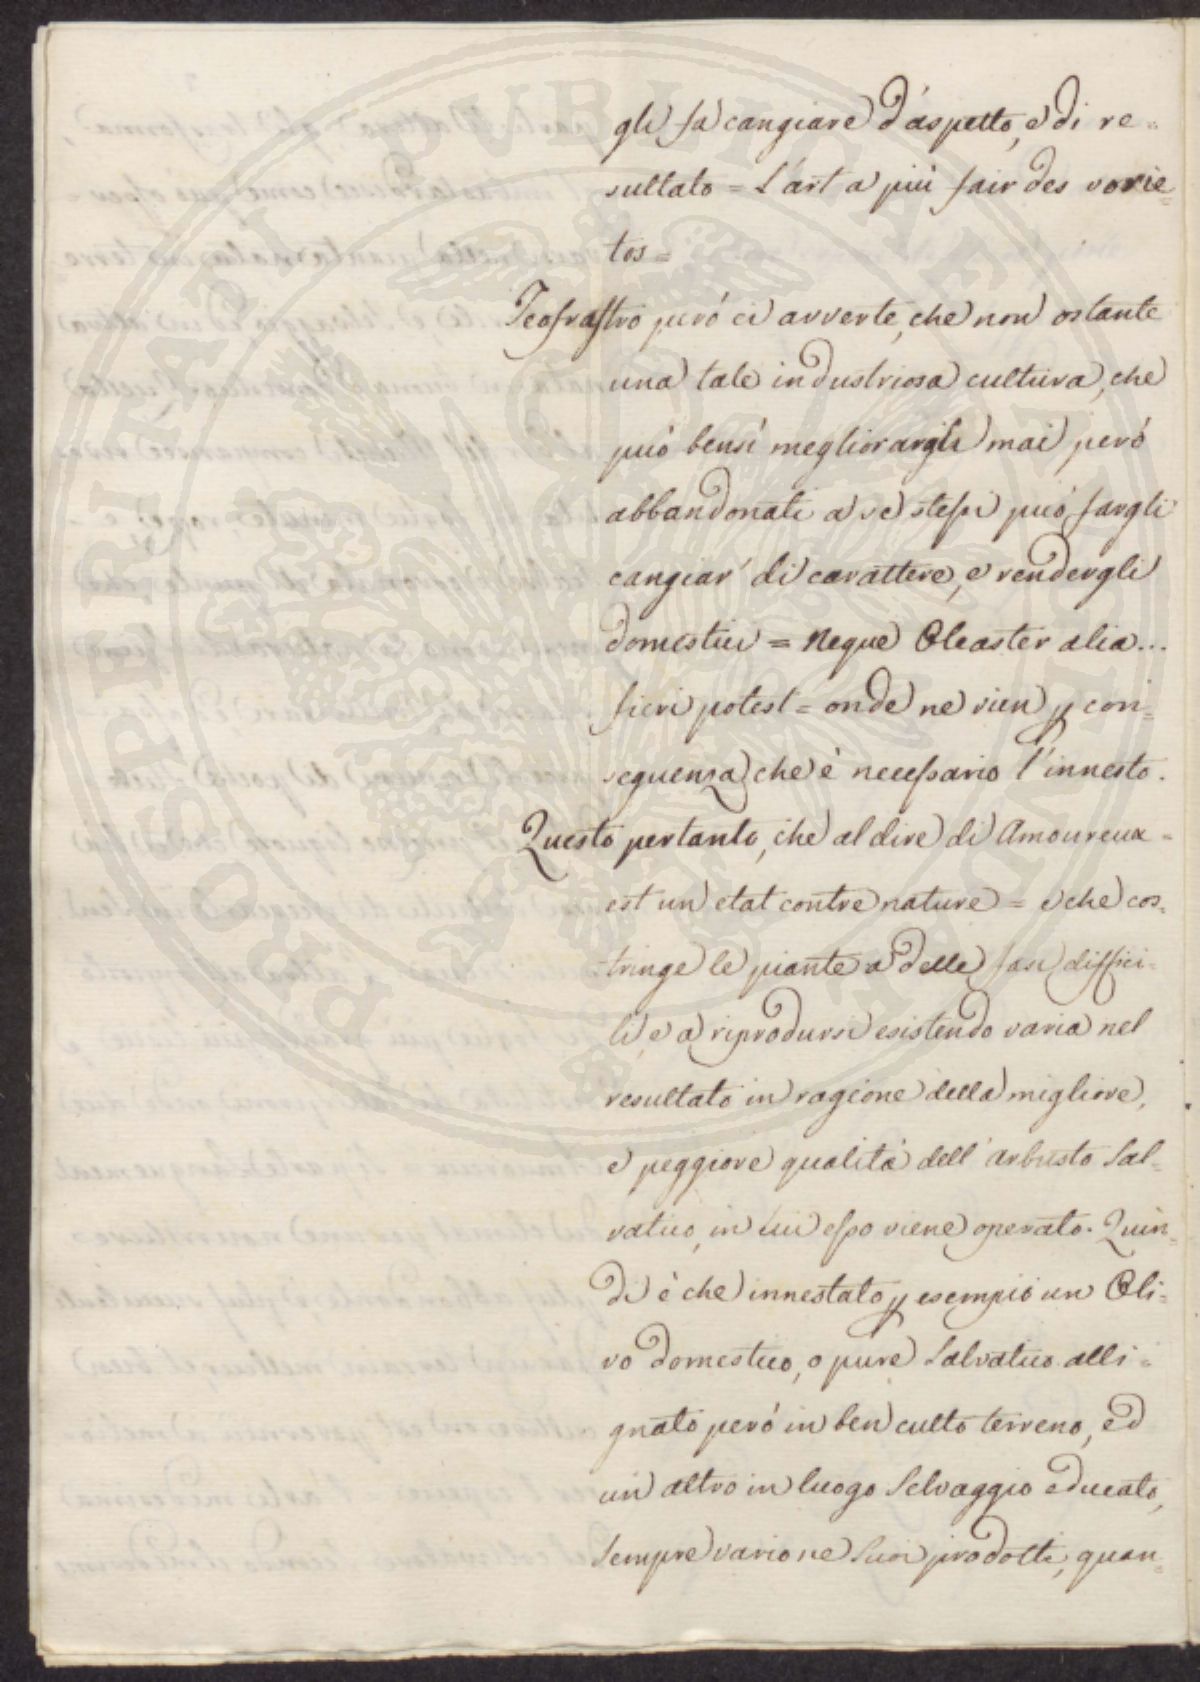 gli fa cangiare d'aspetto, e di re=
sultato = L'art a più fair des varie=
tos =
Teofrastro però ci avverte, che non ostante
una tale industriosa cultura, che
può bensì megliorargli mai però
abbandonati a se stessi può fargli
cangiar' di carattere, e rendergli
domestici = Neque Oleaster alia...
fieri potest = onde ne vien p con=
seguenza che è necessario l'innesto.
Questo pertanto, che al dire di Amoureux =
est un etat contre nature = e che cos=
tringe le piante a delle fasi diffici=
li, e a riprodursi esistendo varia nel
resultato in ragione della migliore,
e peggiore qualità dell'arbusto Sal=
vatico, in cui esso viene operato. Quin=
di è che innestato p esempio un Oli=
vo domestico, o pure Salvatico alli=
gnato però in ben culto terreno, ed
un altro in luogo Selvaggio educato,
sempre varione suoi prodotti, quan=
PROSPERITATI PUBLICAE AUGENDAE